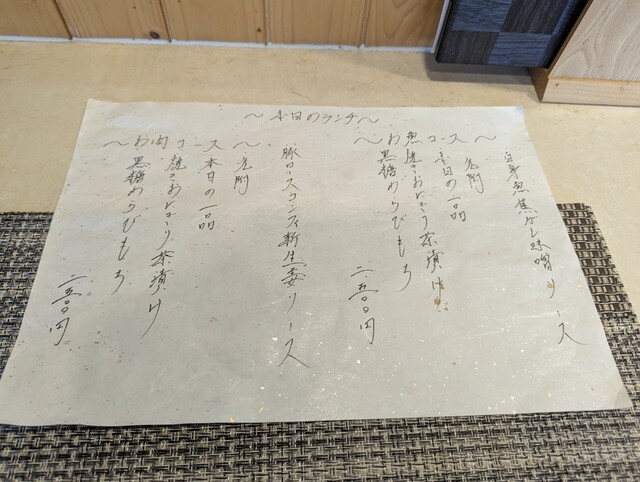 〜本日のランチ〜
〜お魚コース〜
白身魚焦がし味噌ソース
先附
本日の一品
焼きおにぎり茶漬け
黒糖わらびもち
二五〇〇円
〜お肉コース〜
豚ロースコンフィ新生姜ソース
先附
本日の一品
焼きおにぎり茶漬け
黒糖わらびもち